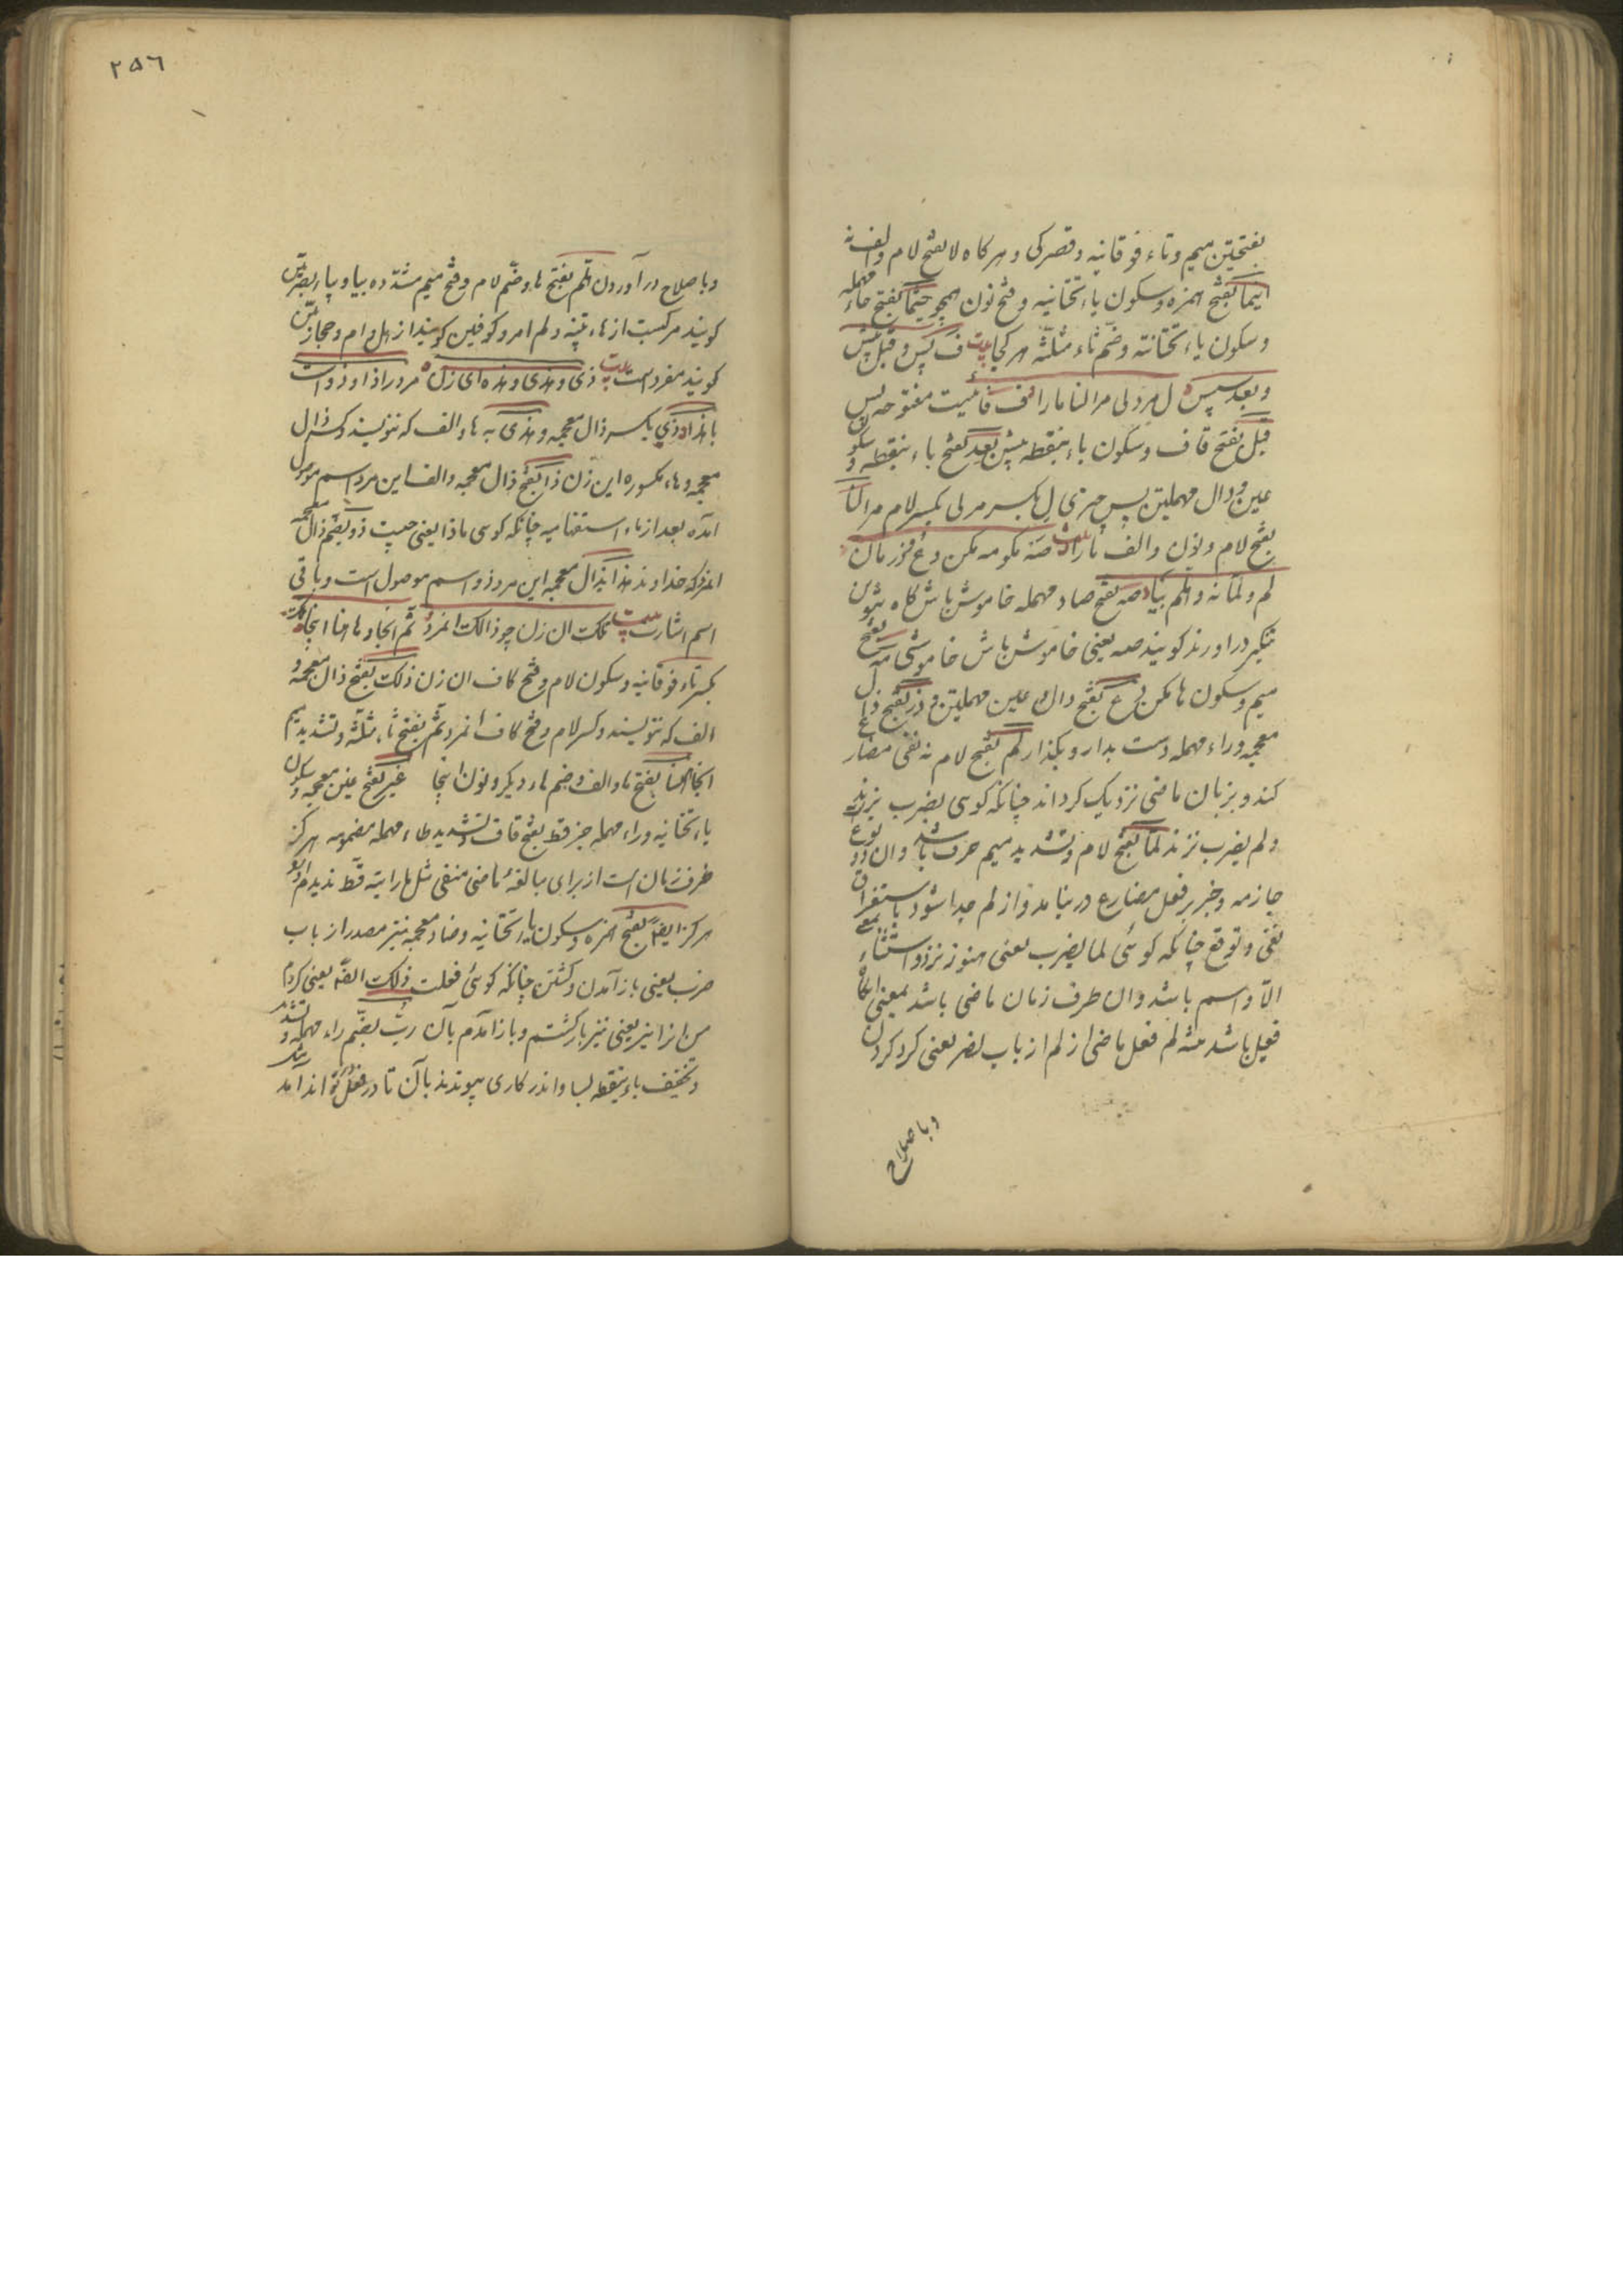 بفتحتین میم و تاء فوقانیه و قصر کی و هرکاه لا بفتح لام والف نه
اینما بفتح همزه و سکون یاء تحتانیه و فتح نون همچو حیثما بفتح حاء مهمله
و سکون یاء تحتانیه و ضم ثاء مثلثه هر کجا بیت ف پس و قبل پیش
و بعد سپس ل مر و لی مرا لنا مارا ف فائیت مفتوحه پس
قبل بفتح قاف و سکون باء بنقطه پیش بعد بفتح باء بنقطه و سکون
عین و دال مهملتین پس چیزی ل بکسر مر لی بکسر لام مرا لنا
بفتح لام و نون والف مارا بیت صه مکو مه مکن دع ذر مان
لم و لما نه و هلم بیا صه بفتح صاد مهمله خاموش باش کاه تنوین
تنکیر در اورند کویند صه یعنی خاموش باش خاموشی مه بفتح
میم و سکون ها مکن دع بفتح دال و عین مهملتین و ذر بفتح ذال
معجمه و راء مهمله دست بدار و بکذار لم بفتح لام نه نفی مضارع
کند و بزبان ماضی نزدیک کرداند چنانکه کوئی یضرب بزند
و لم یضرب نزد لما بفتح لام و تشدید میم حرف باشد و ان دو نوع
جازمه و جز بر فعل مضارع در نیامد و از لم جدا شود باستغراق
نفی و توقع چنانکه کوئی لما یضرب یعنی هنوز نزد و استثناء بمعنی
الا و اسم باشد و ان ظرف زمان ماضی باشد بمعنی
فعل باشد مثه لم فعل ماضی از لم از باب نصر یعنی کرد کردن
و باصلاح
٢٥٦
و باصلاح در آوردن هلم بفتح ها و ضم لام و فتح میم مشدده بیا و بیا بصریین
کویند مرکبست از هاء تنبیه و لم امر و کوفیین کویند از هل و ام و حجازیین
کویند مفرد است بیت ذی و هذی و هذه ای زن مرد را ذا و ذو است
با هذا ذی بکسر ذال معجمه و هذی به هاء والف که ننویسند و کسر ذال
معجمه و هاء مکسوره این زن ذا بفتح ذال معجمه والف این مرد اسم موصول
امده بعد از ماء استفهامیه چنانکه کوئی ماذا یعنی چیست ذو بضم ذال معجمه
انمرد که خداوند هذا بذال معجمه این مرد ذو اسم موصول است و باقی
اسم اشارت بیت تلک ان زن چو ذالک انمرد ثم انجا و هاهنا اینجا تلک
بکسر تاء فوقانیه و سکون لام و فتح کاف ان زن ذلک بفتح ذال معجمه و
الف که ننویسند و کسر لام و فتح کاف انمرد ثم بفتح ثاء مثلثه و تشدید میم
انجا هاهنا بفتح ها والف و ضم هاء دیکر و نون اینجا غیر بفتح غین معجمه و سکون
یاء تحتانیه و راء مهمله جز قط بفتح قاف و تشدید طاء مهمله مضمومه هرکز
ظرف زمان است از برای مبالغه ماضی منفی مثل ما رایته قط ندیدم او را
هرکز ایضا بفتح همزه و سکون یاء تحتانیه و ضاد معجمه نیز مصدر از باب
ضرب یعنی باز آمدن و کشتن چنانکه کوئی فعلت ذلک ایضا یعنی کردم
من انرا نیز یعنی نیز بازکشتم و باز آمدم بآن رب بضم راء مهمله و تشدید
و تخفیف باء بنقطه بسا و اندر کاری پیوندند بآن تا در فعل تواند آمد